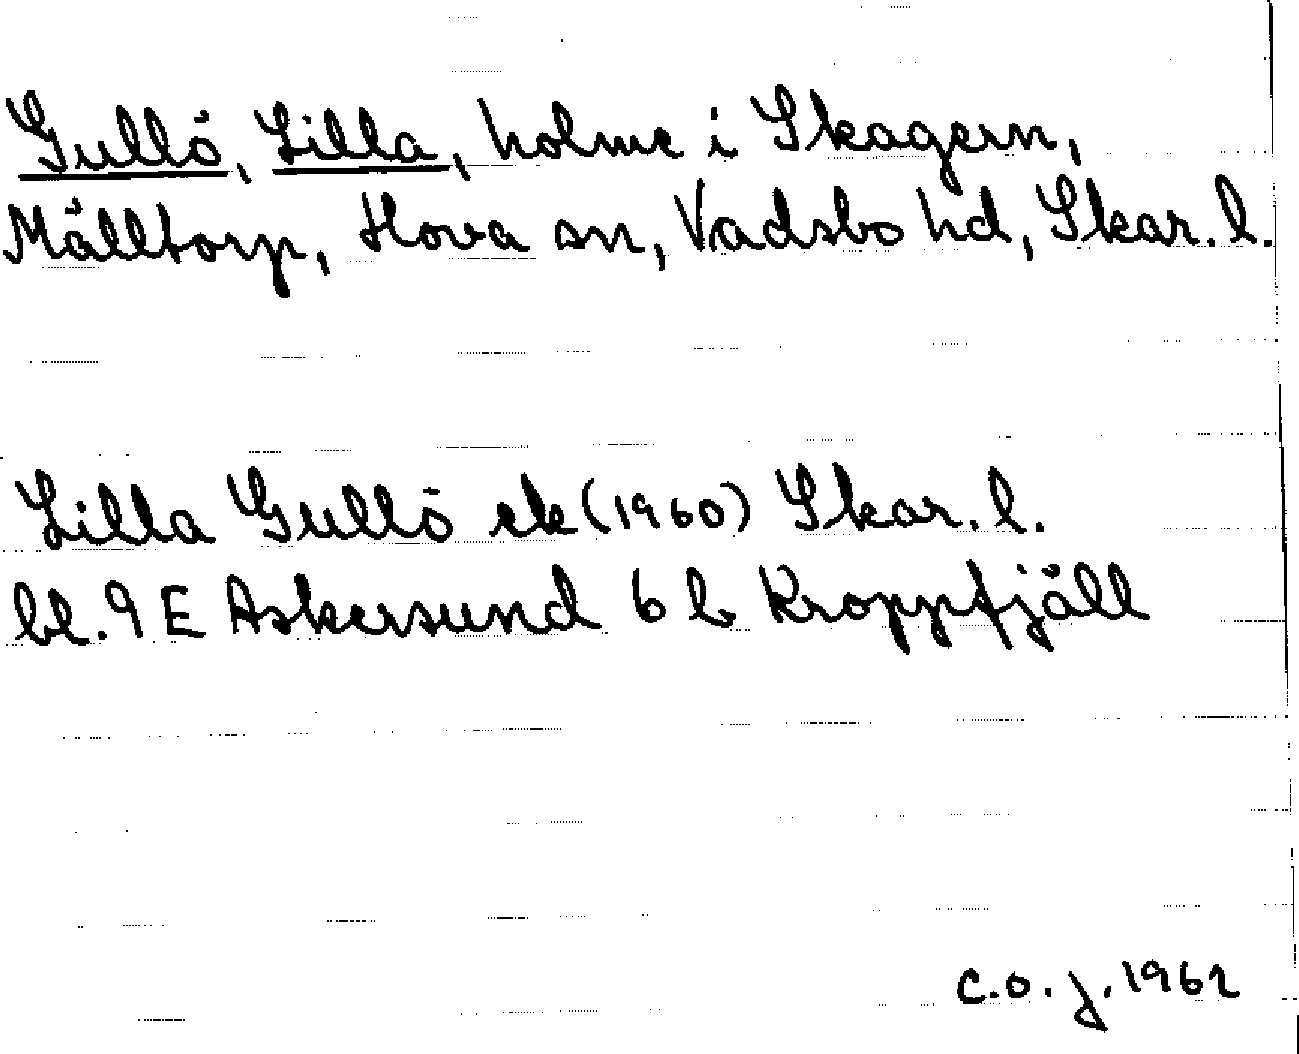 Gullö, Lilla, holme i Skagern,
Mälltorp, Hova sn, Vadsbo hd, Skar. l.
Lilla Gullö ek (1960) Skar. l.
bl. 9 E Askersund 6 b Kroppfjäll
C.O.J. 1962